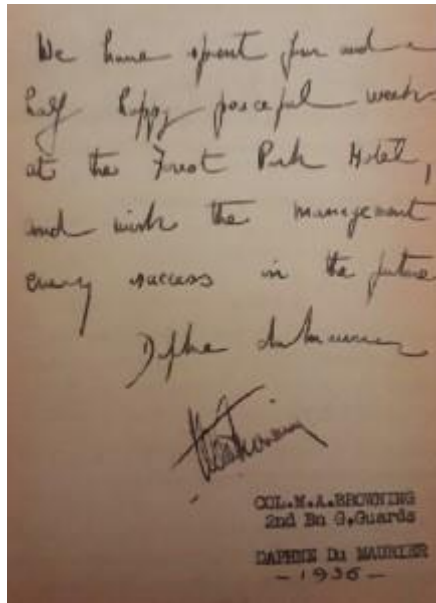 We have spent four and a
half happy peaceful weeks
at the Forest Park Hotel,
and wish the management
every success in the future
Daphne du Maurier
COL.M.A.BROWNING
2nd Bn G.Guards
DAPHNE Du MAURIER
- 1936 -